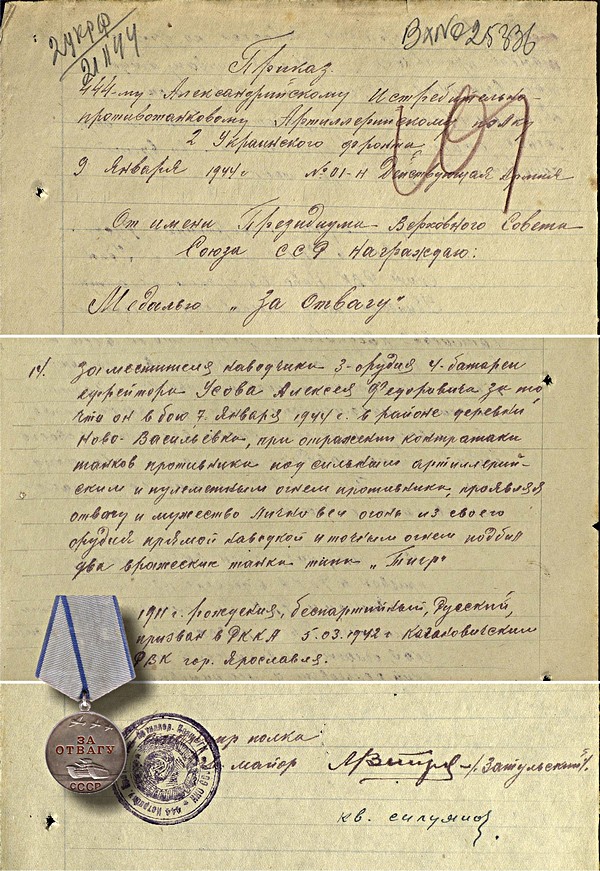 2 УКР Ф
21 II 44
Вх№ 25336
Приказ
444-му Александрийскому Истребительно-
противотанковому Артиллерийскому полку
2 Украинского фронта
9 Января 1944 г. №01-н Действующая Армия
От имени Президиума Верховного Совета
Союза ССР награждаю:
Медалью „За отвагу".
заместителя наводчика 3-орудия 4-батареи
ефрейтора Усова Алексея Федоровича за то
что он в бою 7 Января 1944 г. в районе деревни
Ново-Васильевка, при отражении контратаки
танков противника под сильным артиллерий-
ским и пулеметным огнем противника, проявляя
отвагу и мужество лично вел огонь из своего
орудия прямой наводкой и точным огнем подбил
два вражеских танка типа „Тигр"
1911 г. рождения, беспартийный, Русский,
призван в РККА 5.03.1942 г Кагановичским
РВК гор. Ярославля.
полка
майор /Затульский/
ЗА
ОТВАГУ
СССР